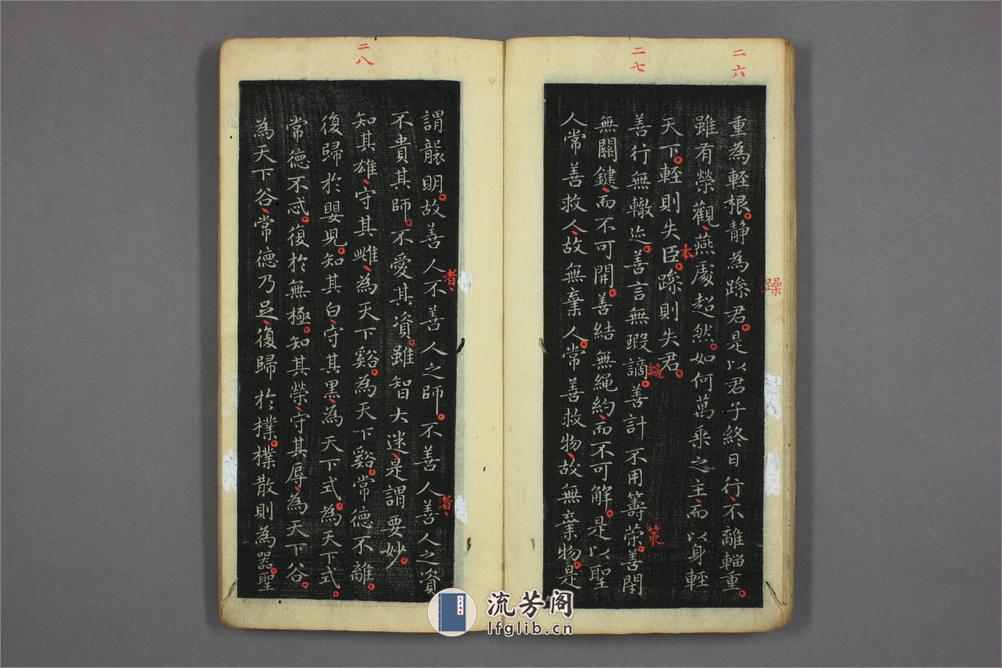 二六
重為輕根靜為躁君是以君子終日行不離輜重
躁
雖有榮觀燕處超然如何萬乘之主而以身輕
天下輕則失臣躁則失君
本
二七
善行無轍迹善言無瑕謫善計不用籌策善閉
策
無關鍵而不可開善結無繩約而不可解是以聖
人常善救人故無棄人常善救物故無棄物是
謂襲明故善人不善人之師不善人善人之資
者
者
不貴其師不愛其資雖智大迷是謂要妙
二八
知其雄守其雌為天下谿為天下谿常德不離
復歸於嬰兒知其白守其黑為天下式為天下式
常德不忒復於無極知其榮守其辱為天下谷
為天下谷常德乃足復歸於樸樸散則為器聖
流芳阁
lfglib.cn